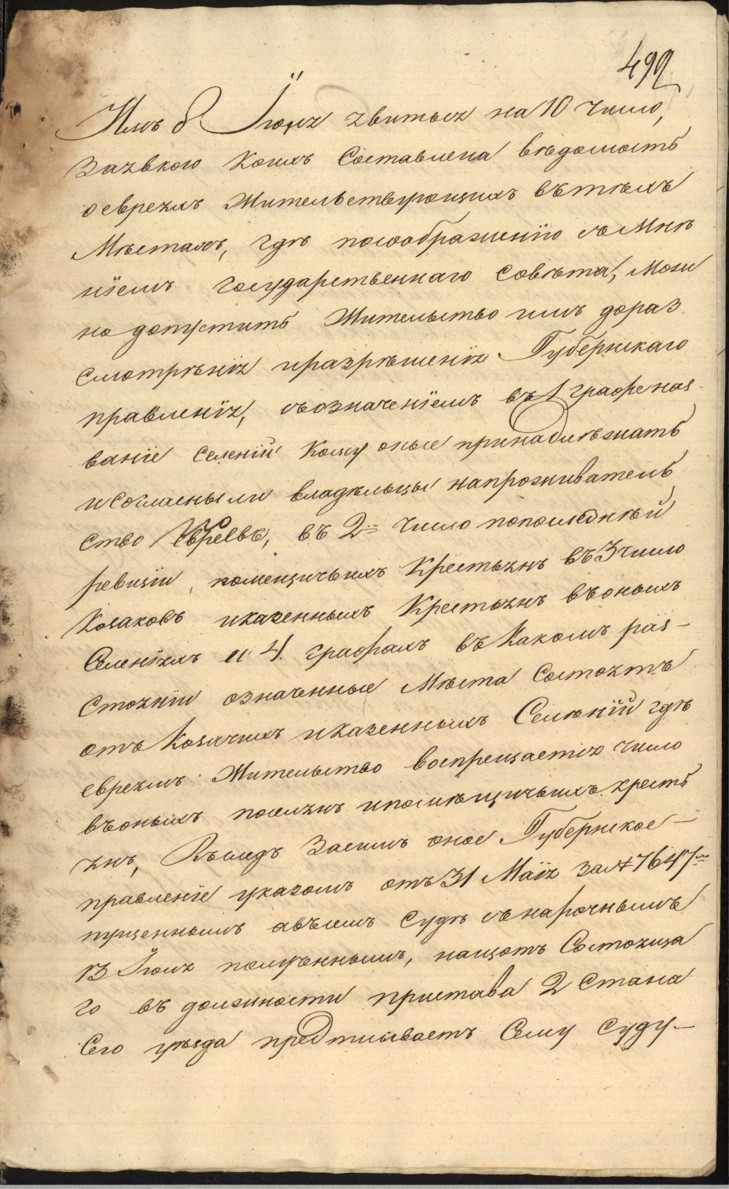 499
Имъ 8 Іюля явиться на 10 число,
въ коихъ составлена вѣдомость
о евреяхъ жительствующихъ въ тѣхъ
Мѣстахъ, гдѣ посоображенію съ Мнѣ
ніемъ государственнаго совѣта, можи
но допустить жительство имъ дораз
смотрѣнія иразрѣшенія Губернскаго
правленія, съозначеніемъ въ 1 графе наз
ваніе селеній кому оные принадлѣжатъ
и согласныли владѣльцы напроживатель
ство евреевъ, въ 2й число попослѣдней
ревизіи помещичьихъ Крестьянъ въ 3 число
Козаковъ иказенныхъ Крестьянъ въоныхъ
Селеніяхъ и 4. графахъ въ какомъ раз-
стояніи означенные Мѣста состоятъ
отъ козачихъ иказенныхъ Селѣній гдѣ
евреямъ жительство воспрещается число
въоныхъ поселянъ ипомѣщичьихъ кресть
янъ, Въследъ Засимъ оное Губернское-
правленіе указомъ отъ 31 Маія за № 7647мъ
пущеннымъ авъсемъ судѣ съ нарочнымъ
13 Іюля полученнымъ, нащотъ Состояща
го въ должности пристава 2 Стана
Сего уѣзда предписываетъ Сему Суду-